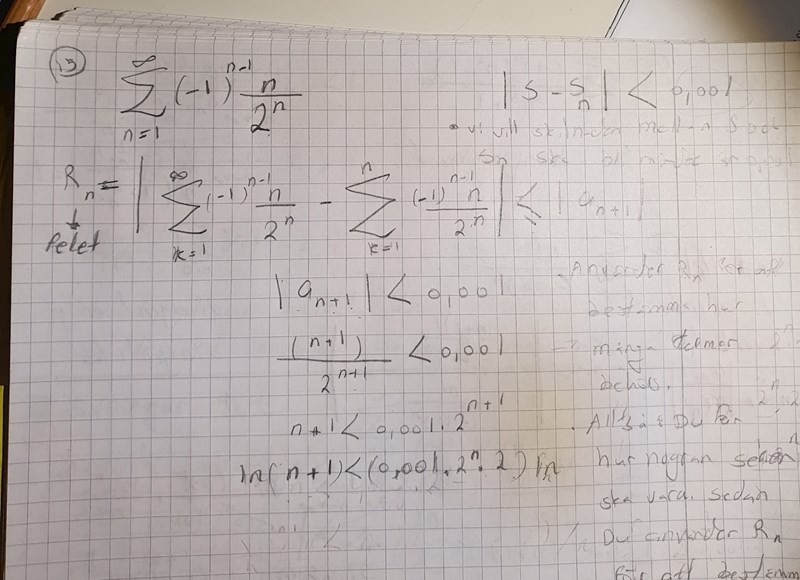 13) ∞ ∑ n=1 (-1)^{n-1} n/2^n
|S - S_n| < 0,001
• vi vill skilnaden mellan S och
S_n ska bli mindre
R_n = | ∞ ∑ k=1 (-1)^{n-1} n/2^n - n ∑ k=1 (-1)^{n-1} n/2^n | ≤ |a_{n+1}|
↓
felet
|a_{n+1}| < 0,001
(n+1)/2^{n+1} < 0,001
n+1 < 0,001 · 2^{n+1}
ln(n+1) < (0,001 · 2^n · 2) ln
· Använder R_n för att
bestämma hur
många termer
behövs.
· Alltså Du
hur noggran
ska vara. sedan
Du använder R_n
för att bestämm